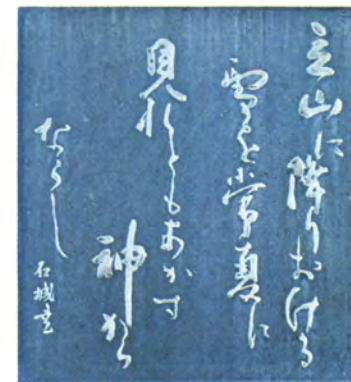 立山に降りおける
雪を常夏に
見れともあかす
神から
ならし
石城書